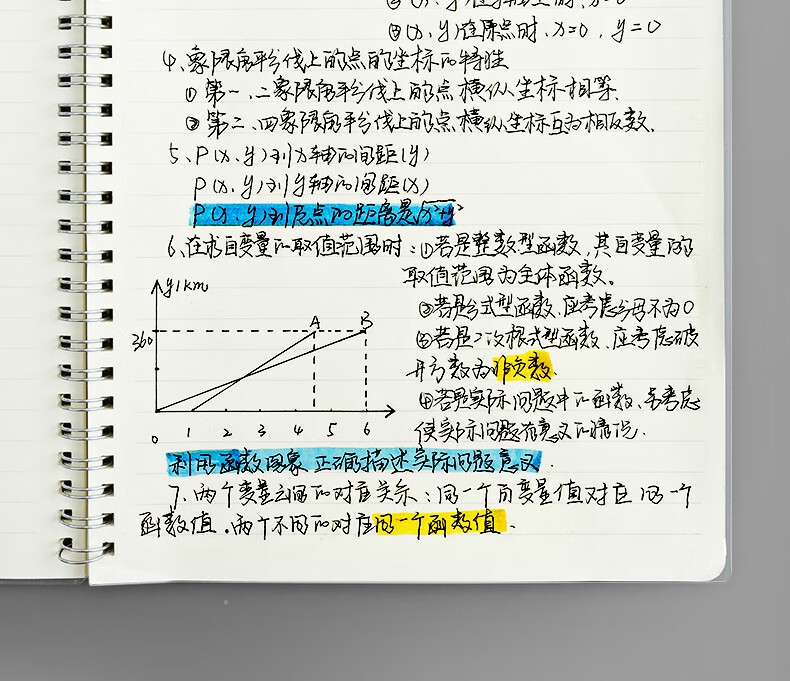 ③(x,y)在原点时,x=0,y=0
4、象限角平分线上的点的坐标的特性
①第一、二象限角平分线上的点横纵坐标相等
②第二、四象限角平分线上的点横纵坐标互为相反数.
5、P(x,y)到x轴的间距(y)
P(x,y)到y轴的间距(x)
P(x,y)到原点的距离是√x²+y²
6、在求自变量的取值范围时:①若是整数型函数,其自变量的
取值范围为全体函数。
②若是分式型函数、应考虑分母不为0
③若是二次根式型函数、应考虑被
开方数为非负数.
④若是实际问题中的函数、需考虑
使实际问题有意义的情况.
y/km
A B
360
0 1 2 3 4 5 6
利用函数图象正确描述实际问题意义.
7、两个变量之间的对应关系:同一个自变量值对应同一个
函数值.两个不同的对应同一个函数值.